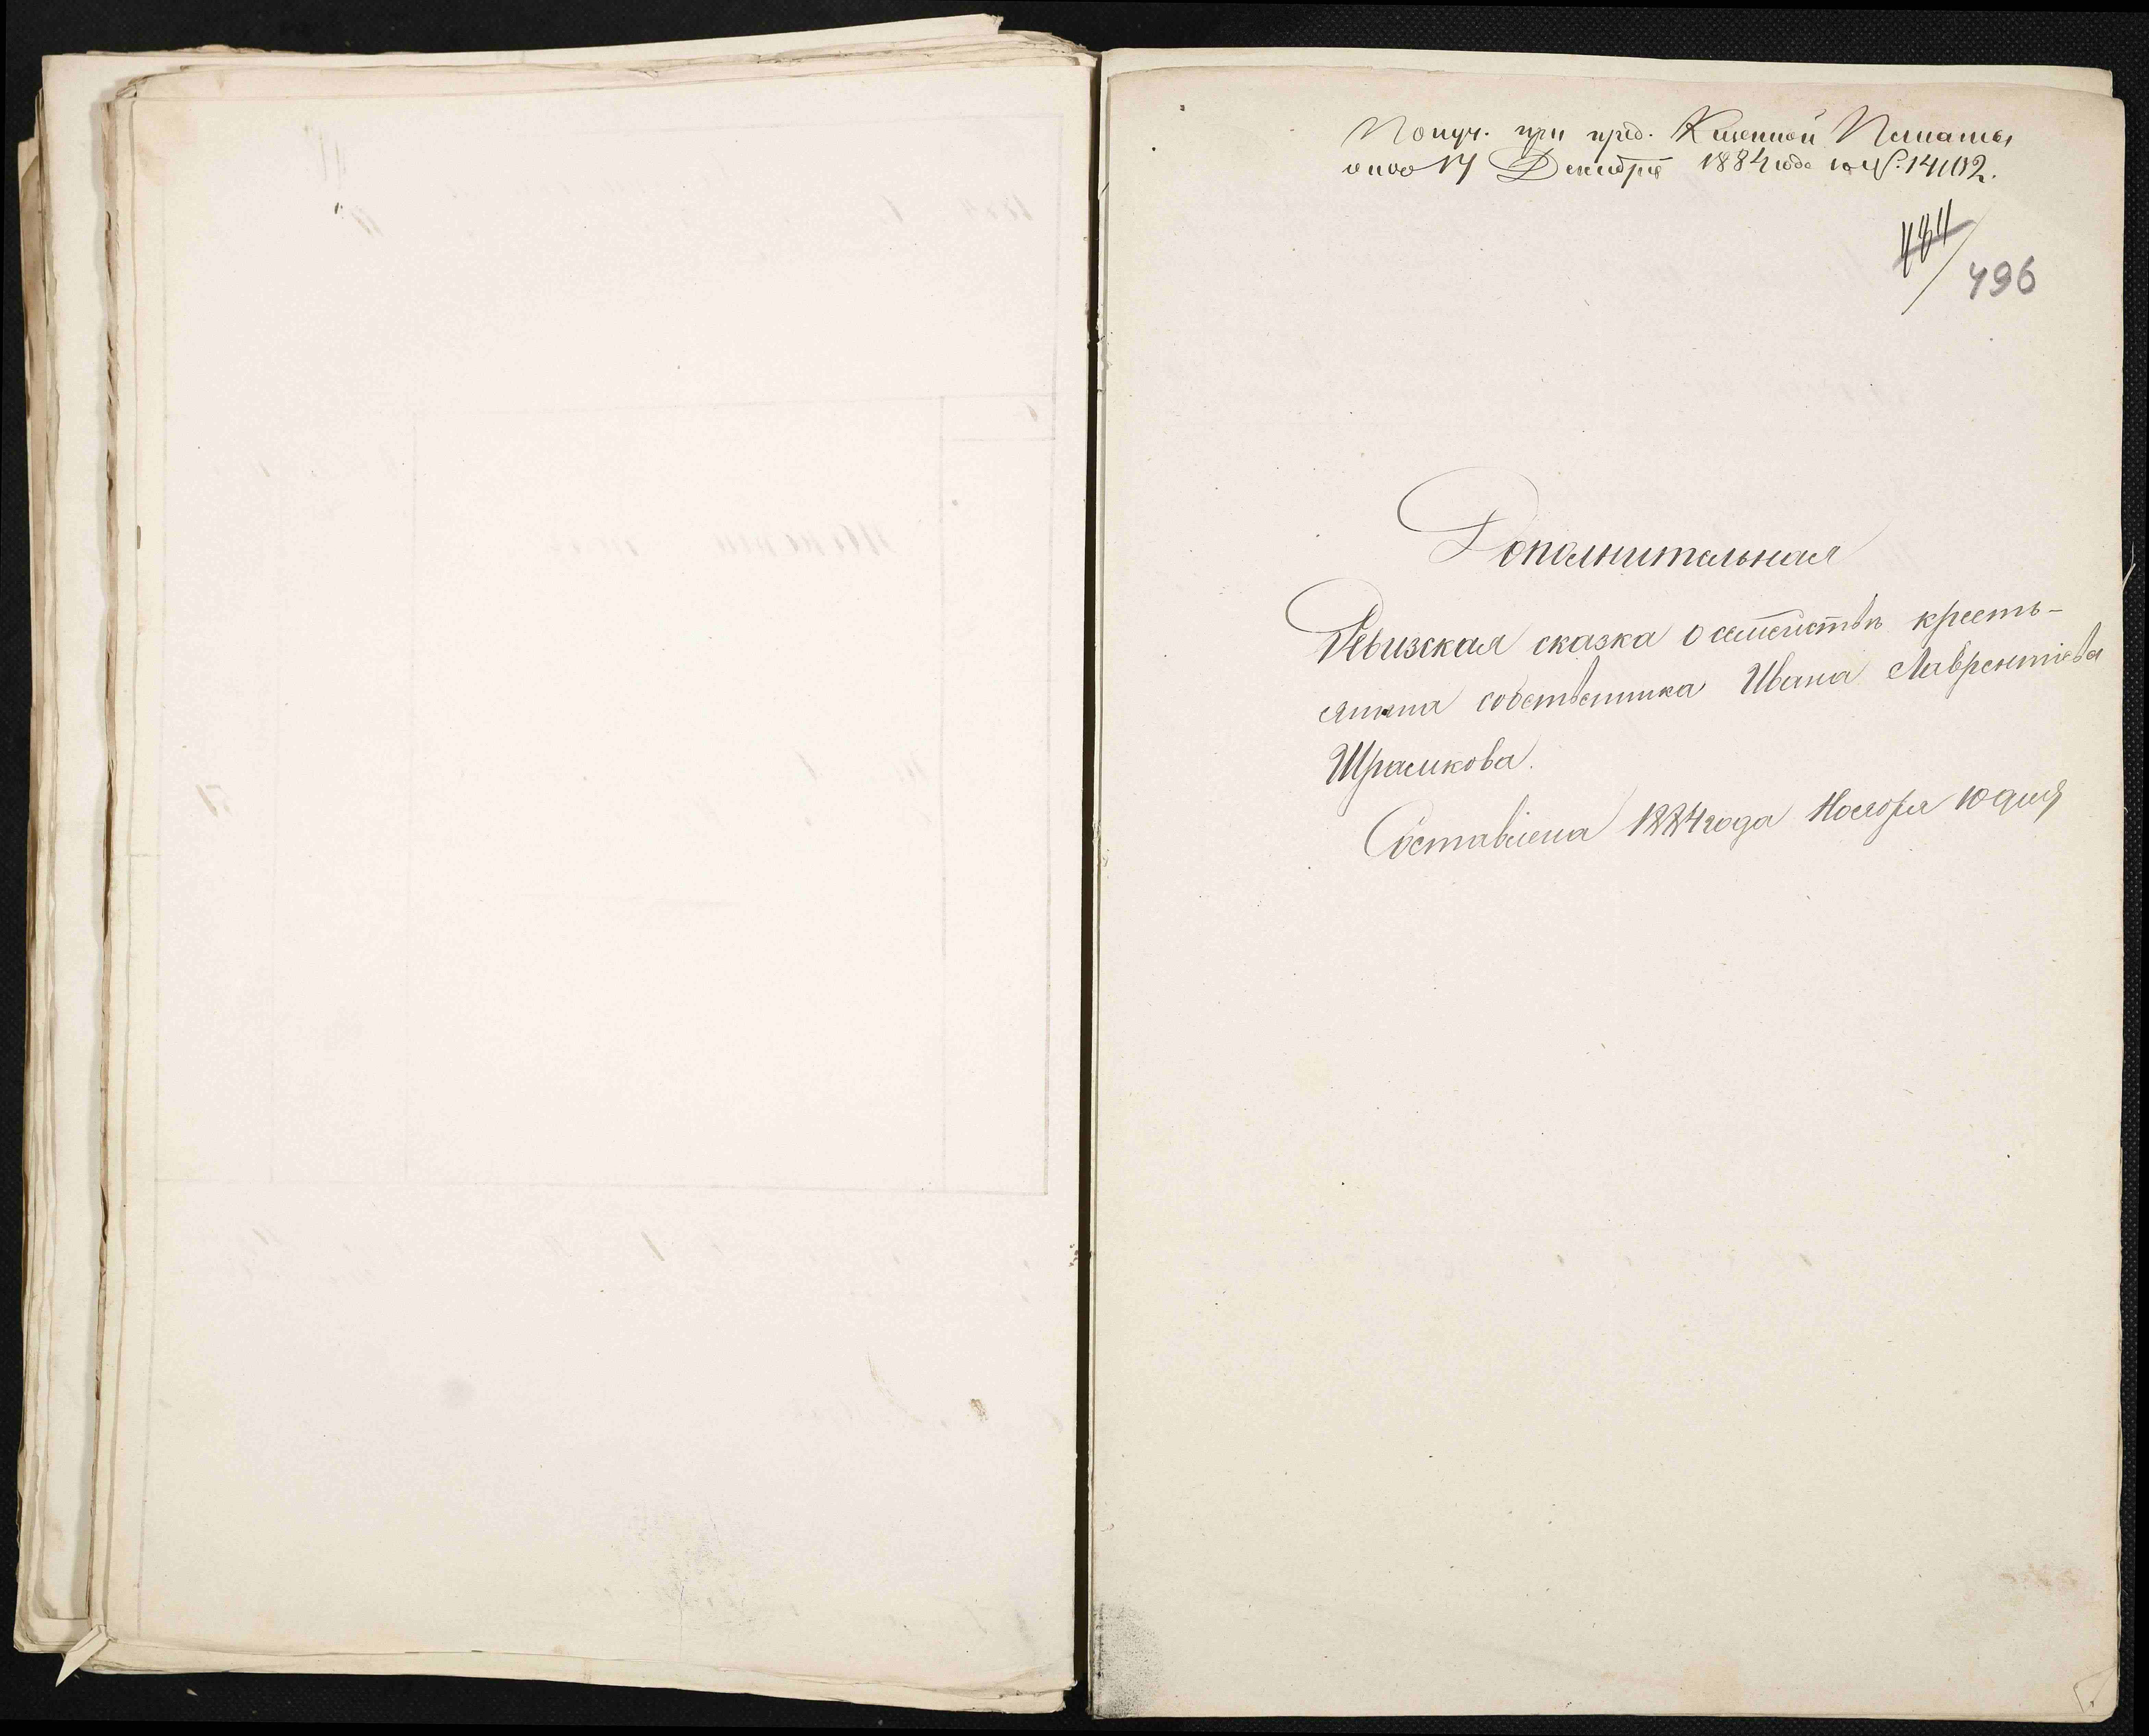 Получ. при пред. Казенной Палаты
отъ 17 Декабря 1884 года за №. 14102.
484
496
Дополнительная
Ревизская сказка о семействѣ кресть-
янина собственника Ивана Лаврентіева
Шрамкова.
Составлена 1884 года Ноября 10 дня